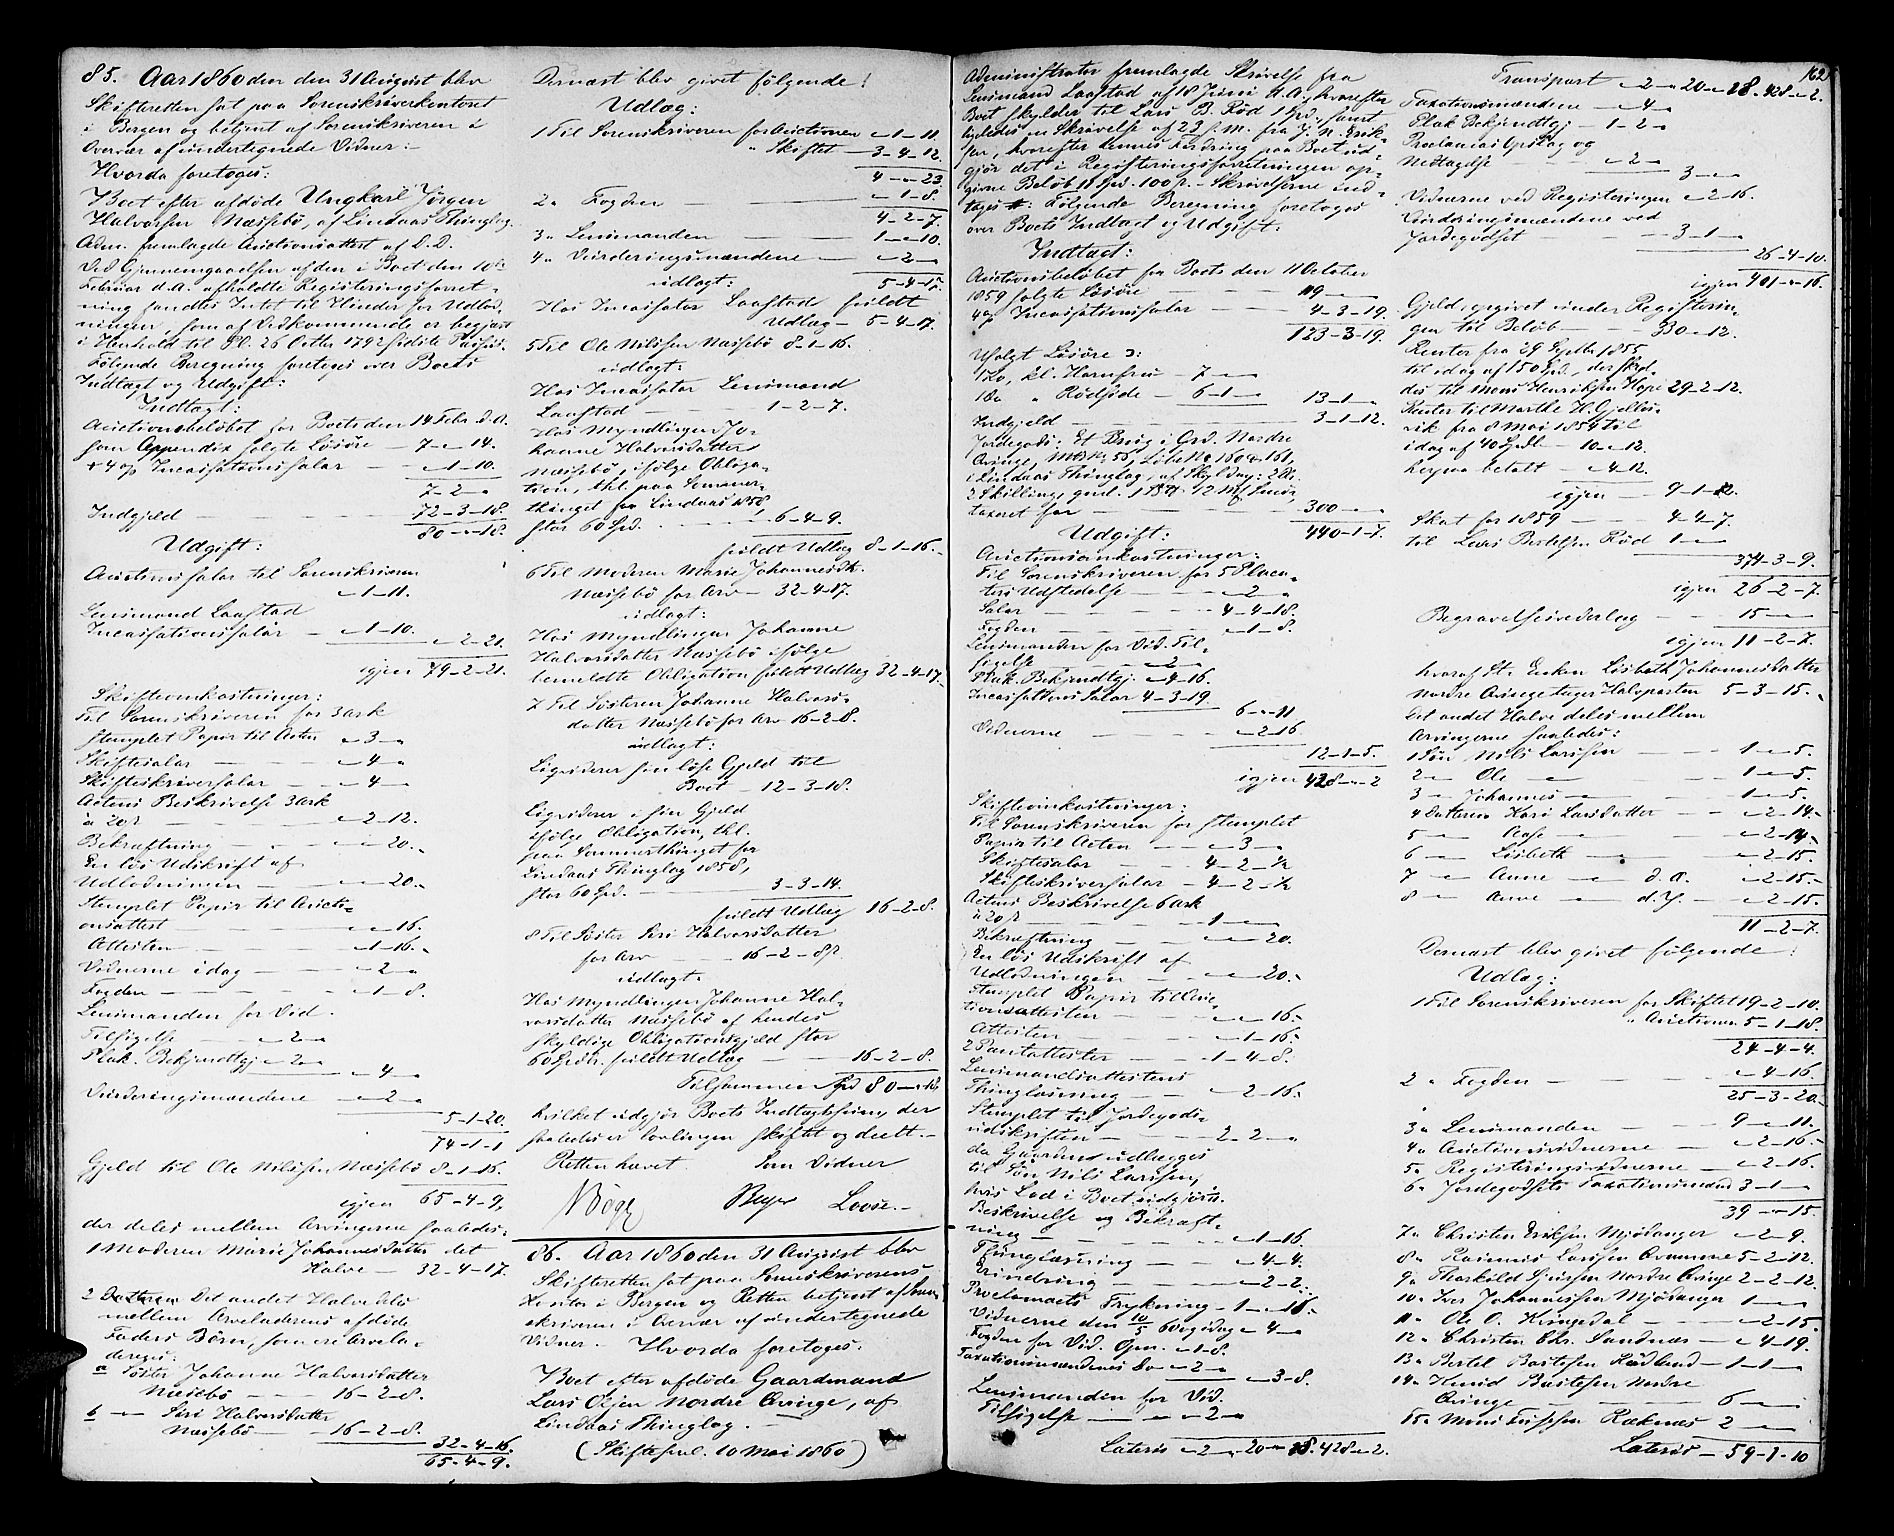 85. Aar 1860 den 31 August blev
Skifteretten sat paa Sorenskriverkontoret
i Bergen og betjent af Sorenskriveren i
Overvær af undertegnede Vidner:
Hvorda foretoges:
Boet efter afdøde Ungkarl Jørgen
Halvorsen Næssebø, af Lindaas Thinglag.
Adm. fremlagde Auctionsattest af D.D.
Ved Gjennemgaaelsen af den i Boet den 10de
Februar d.A. afholdte Registeringsforret-
ning fandtes Intet til Hinder for Udlod-
ningen, som af Vedkommende er begjært
i Henhold til Pl. 26 Octbr 1792 sidste Passus.
Følgende Beregning foretoges over Boets
Indtægt og Udgift:
Indtægt:
Auctionsbeløbet for Boets den 14 Febr. d.A.
som Appendix solgte Løsøre 7 - " - 14.
+ 4 op Incassationssalær " - 1 - 10.
7 - 2 - "
Indgjeld 72 - 3 - 18.
80 - " - 18.
Udgift:
Auctionssalær til Sorenskriveren
" - 1 - 11.
Lensmand Laastad
Incassationssalær " - 1 - 10.
" - 2 - 21.
igjen 79 - 2 - 21.
Skifteomkostninger:
Til Sorenskriveren for 3 Ark
stemplet Papir til Acten " - 3 - "
Skiftesalær " - 4 - "
Skifteskriversalær " - 4 - "
Actens Beskrivelse 3 Ark
a 20 s " - 2 - 12.
Bekræftning " - " - 20.
En løs Udskrift af
Udlodningen " - " - 20.
Stemplet Papir til Aucti-
onsattest " - " - 16.
Attesten " - 1 - 16.
Vidnerne idag " - 2 - "
Fogden " - 1 - 8.
Lensmanden for Vid.
Tilsigelse " - 2 - "
Plak. Bekjendtgj. " - 2 - "
" - 4 - "
Vurderingsmændene " - 2 - "
5 - 1 - 20.
74 - 1 - 1
Gjeld til Ole Nilssen Næssebø 8 - 1 - 16.
igjen 65 - 4 - 9,
der deles mellem Arvingerne saaledes:
1 Moderen Marie Johannesdatter det
Halve 32 - 4 - 17.
2 Det andet Halve blev
mellem Arveladerens afdøde
Faders Børn, som ere Arvela-
deres:
a Søster Johanne Halvorsdatter
Næssebø 16 - 2 - 8.
b " Siri Halvorsdatter
Næssebø 16 - 2 - 8.
32 - 4 - 16.
65 - 4 - 9.
Dernæst blev givet følgende
Udlæg:
1 Til Sorenskriveren for Auctionen " - 1 - 11
" Skiftet 3 - 4 - 12.
4 - " - 23
2 " Fogden " - 1 - 8.
4 - 2 - 7.
3 " Lensmanden 1 - " - 10.
4 " Vurderingsmændene " - 2 - "
5 - 4 - 17.
udlagt:
Hos Incassator Laastad fuldt
Udlæg 5 - 4 - 17.
5 Til Ole Nilssen Næssebø 8 - 1 - 16.
udlagt:
Hos Incassator Lensmand
Laastad 1 - 2 - 7.
Hos Myndlingen Jo-
hanne Halvorsdatter
Næssebø, ifølge Obliga-
tion, thl. paa Sommer-
thinget for Lindaas 1858
stor 60 Spd. 6 - 4 - 9.
fuldt Udlæg 8 - 1 - 16.
6 Til Moderen Marie Johannesdtr.
Næssebø for Arv 32 - 4 - 17.
udlagt:
Hos Myndlingen Johanne
Halvorsdatter Næssebø ifølge
bemeldte Obligation fuldt Udlæg 32 - 4 - 17.
7 Til Søsteren Johanne Halvors-
datter Næssebø for Arv 16 - 2 - 8.
udlagt:
Ligviderer sin løse Gjeld til
Boet 12 - 3 - 18.
Ligviderer i sin Gjeld
ifølge Obligation, thl.
paa Sommerthinget for
Lindaas Thinglag 1858,
stor 60 Spd. 3 - 3 - 14.
fuldt Udlæg 16 - 2 - 8.
8 Til Søster Siri Halvorsdatter
for Arv 16 - 2 - 8 s.
udlagt:
Hos Myndlingen Johanne Hal-
vorsdatter Næssebø af hendes
skyldige Obligationsgjeld stor
60 Spdr. fuldt Udlæg 16 - 2 - 8.
Tilsammen Spd 80 - " - 18
hvilket udgjør Boets Indtægtssum, der
saaledes er lovlingen skiftet og deelt.
Retten hævet Som Vidner
NBøgh Beyer Loose.
86. Aar 1860 den 31 August blev
Skifteretten sat paa Sorenskriverens
Kontor i Bergen og Retten betjent af Soren-
skriveren i Overvær af undertegnede
Vidner. Hvorda foretoges:
Boet efter afdøde Gaardmand
Lars Olsen Nordre Qvinge, af
Lindaas Thinglag.
(Skifteforl. 10 Mai 1860)
162
Administrator fremlagde Skrivelse fra
Lensmand Laastad af 18 Juni d.A., hvorefter
Boet skylder til Lars B. Rød 1 Spd., samt
ligeledes en Skrivelse af 23 s.M. fra J. N. Erik-
sen, hvorefter hennes Fordring paa Boet ud-
gjør det i Registeringsforretningen op-
givne Beløb 11 Spd. 100 s. - Skrivelserne ind-
tages: Følgende Beregning foretoges
over Boets Indtægt og Udgift:
Indtægt:
Auctionsbeløbet for Boets den 11 October
1859 solgte Løsøre 119 - " - "
4 op Incassationssalær 4 - 3 - 19.
123 - 3 - 19.
Usolgt Løsøre:
1 Ko, kl. Hornfrue 7 - " - "
1 do " Rødside 6 - 1 - "
13 - 1 - "
Indgjeld 3 - 1 - 12.
Jordegods: Et Brug i Grd. Nordre
Qvinge, Mtr. No 56, Løbe No 160 & 161,
i Lindaas Thinglag, af Skyld ny: 2 Dl.
2 Skilling, gml. 1 Pd. 12 Mk. Smør
taxeret for 300 - " - "
440 - 1 - 7.
Udgift:
Auctionsomkostninger:
Til Sorenskriveren for 5 Placa-
ters Udstedelse " - 2 - "
Salær 4 - 4 - 18.
Fogden " - 1 - 8.
Lensmanden for Vid. Til-
sigelse " - 2 - "
Plak. Bekjendtgj. " - 4 - 16.
Incassations Salær 4 - 3 - 19.
6 - " - 11
Vidnerne " - 2 - 16.
12 - 1 - 5.
igjen 428 - " - 2
Skifteomkostninger:
Til Sorenskriveren for stemplet
Papir til Acten " - 3 - "
Skiftesalær 4 - 2 - ½
Skifteskriversalær 4 - 2 - ½
Actens Beskrivelse 6 Ark
a 20 s 1 - " - "
Bekræftning " - " - 20.
En løs Udskrift af
Udlodningen " - " - 20.
Stemplet Papir til Auc-
tionsattesten " - " - 16.
Attesten " - 1 - 16.
2 Pantattester 1 - 4 - 8.
Lensmandsattestens
Thinglæsning " - 2 - 16.
Stemplet til Jordegods-
udskriften 2 - 2 - "
da Gaarden udlægges
til Søn Nils Larssen,
hvis Lod i Boet udgjøres.
Beskrivelse og Bekræft-
ning " - 1 - 16
Thinglæsning " - 4 - 4.
Erindring " - 2 - 2.
Proclamaets Trykning 1 - " - 16.
Vidnerne den 10/5 60 og idag " - 4 - "
Fogden for Vid. Opn. " - 1 - 8.
Taxationsmændenes do " - 2 - "
" - 3 - 8.
Lensmanden for Vid.
Tilsigelse " - 2 - "
Lateris " - 2 - " 20 - " - 18. 428 - " - 2.
Transport " - 2 - " 20 - " - 28. 428 - " - 2.
Taxationsmændene " - 4 - "
Plak. Bekjendtgj. " - 1 - 2 - "
Proclamas Opslag og
Nedtagelse " - 2 - "
3 - " - "
Vidnerne ved Registeringen " - 2 - 16.
Vurderingsmændene ved
Jordegodset 3 - 1 - "
26 - 4 - 10.
igjen 401 - " - 16.
Gjeld, opgivet under Registerin-
gen til Beløb 330 - " - 12.
Renter fra 29 Septbr 1855
til idag af 150 Spd., der skyl-
des til Mons Henriksen Hope 29 - 2 - 12.
Renter til Marthe H. Gjelles-
vik fra 8 Mai 1854 til
idag af 40 Spdl. 10 - " - 12.
herpaa betalt " - 4 - 12.
igjen 9 - 1 - 12.
Skat for 1859 4 - 4 - 7.
til Lars Bertelsen Rød 1 - " - "
374 - 3 - 9.
igjen 26 - 2 - 7.
Begravelsesvederlag 15 - " - "
igjen 11 - 2 - 7.
hvoraf St. Enken Lisbeth Johannesdatter
Nordre Qvinge tager Halvparten 5 - 3 - 15.
det andet Halve deles mellem
Arvingerne saaledes:
1 Søn Nils Larssen 1 - " - 5.
2 " Ole " 1 - " - 5.
3 " Johannes " 1 - " - 5.
4 Datteren Kari Larsdatter " - 2 - 14.
5 " Aase " " - 2 - 14.
6 " Lisbeth " " - 2 - 15.
7 " Anne " d. Æ. " - 2 - 15.
8 " Anne " d. Y. " - 2 - 15.
11 - 2 - 7.
Dernæst blev givet følgende
Udlæg:
1 Til Sorenskriveren for Skiftet 19 - 2 - 10.
" Auctionen 5 - 1 - 18.
24 - 4 - 4.
2 " Fogden " - 4 - 16.
25 - 3 - 20.
3 " Lensmanden 9 - " - 11.
4 " Auctionsvidnerne " - 2 - 16.
5 " Registeringsvidnerne " - 2 - 16.
6 " Jordegodsets Taxationsmænd 3 - 1 - "
39 - " - 15.
7 " Christen Eriksen Mjødanger " - 2 - 9.
8 " Rasmus Larssen Qvamme 5 - 2 - 12.
9 " Thorkild Jenssen Nordre Qvinge 2 - 2 - 12.
10 " Iver Johannessen Mjødanger 1 - " - "
11 " Ole O. Kringedal " - 2 - 15.
12 " Christen Chr. Sandnæs " - 4 - 19.
13 " Bertel Bastesen Rødland 1 - 1 - "
14 " Knud Bastesen Nordre
Qvinge 6 - " - "
15 " Mons Tufssen Ræknæs 2 - " - "
Lateris 59 - 1 - 10